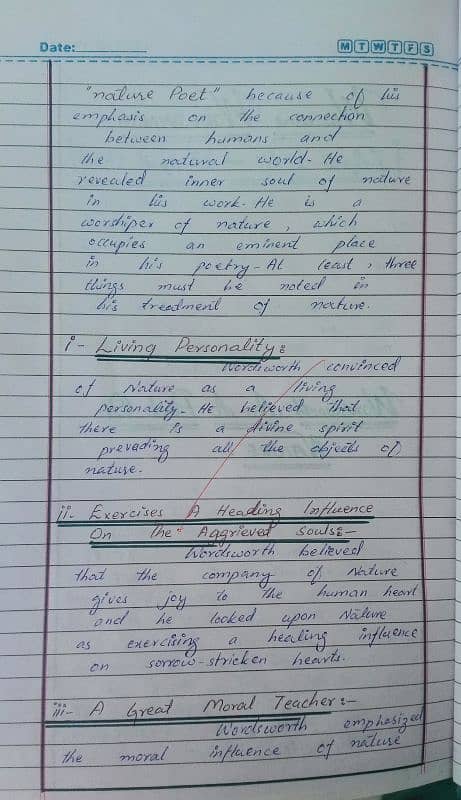 Date:
M T W T F S
"nature Poet" because of his
emphasis on the connection
between humans and
the natural world- He
revealed inner soul of nature
in his work- He is a
worshiper of nature, which
occupies an eminent place
in his poetry- At least, three
things must be noted in
his treedment of nature.
i- Living Personality:
Wordsworth convinced
of Nature as a living
personality- He believed that
there is a divine spirit
prevading all the objects of
nature.
ii- Exercises A Heading Influence
On the Aggrieved Souls:-
Wordsworth believed
that the company of Nature
gives joy to the human heart
and he looked upon Nature
as exercising a healing influence
on sorrow-stricken hearts.
iii- A Great Moral Teacher:-
Wordsworth emphasized
the moral influence of nature